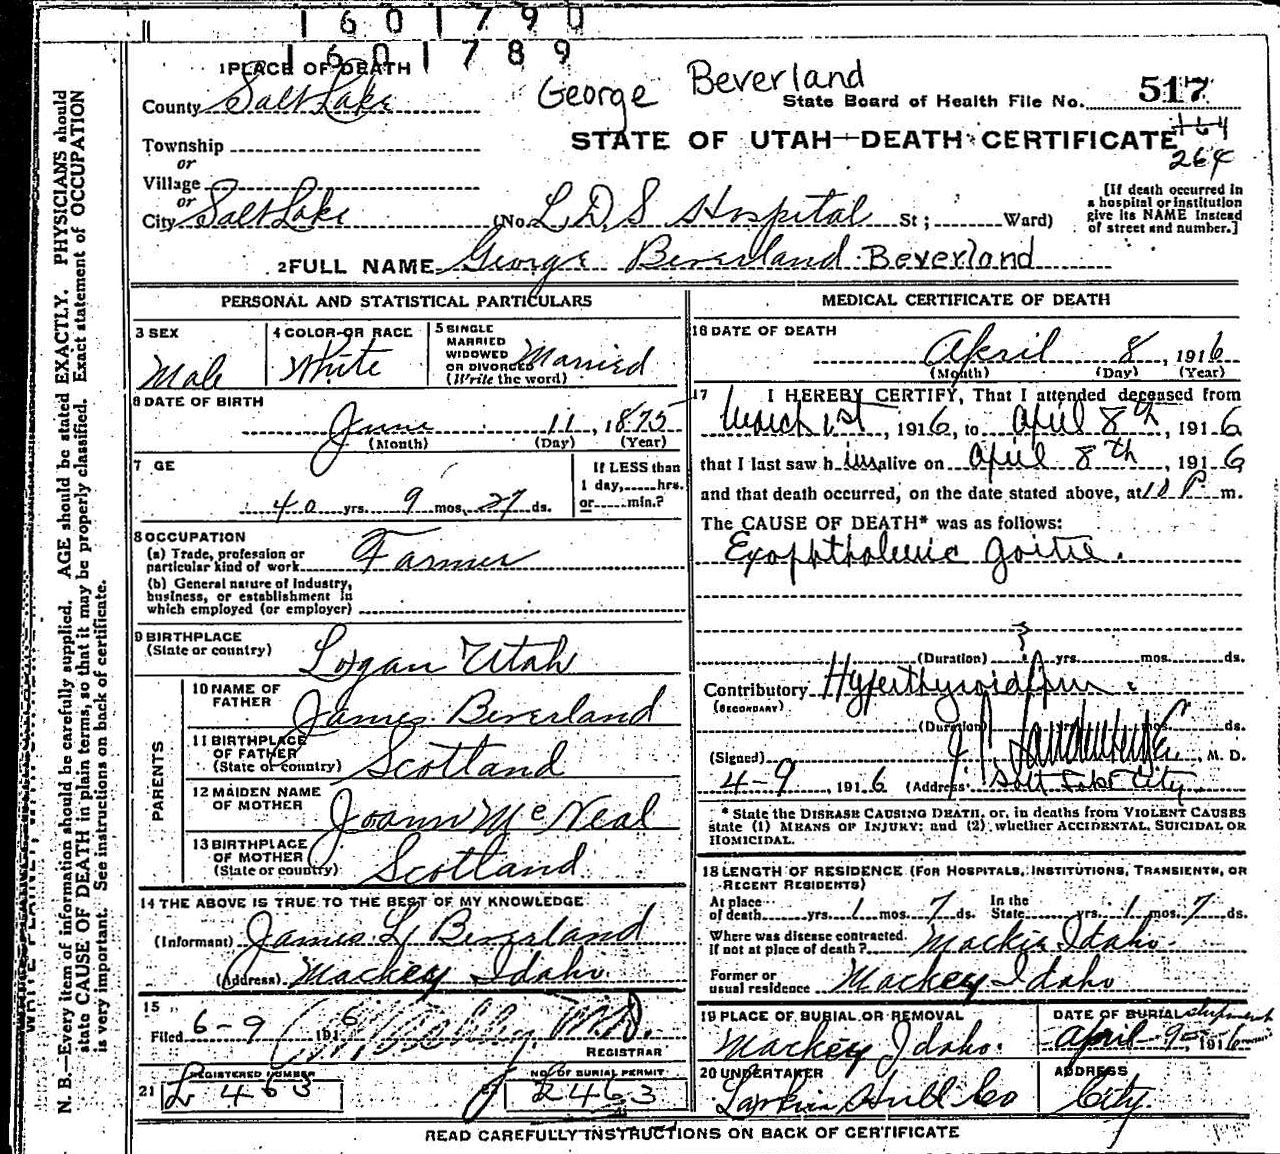 1601790
1601789
1 PLACE OF DEATH
County Salt Lake
George Beverland
State Board of Health File No. 517
STATE OF UTAH—DEATH CERTIFICATE
164
264
Township
or
Village
or
City Salt Lake (No. L.D.S Hospital St; Ward)
[If death occurred in
a hospital or institution
give its NAME instead
of street and number.]
2 FULL NAME George Beverland Beverland
PERSONAL AND STATISTICAL PARTICULARS
3 SEX
Male
4 COLOR OR RACE
White
5 SINGLE
MARRIED
WIDOWED
OR DIVORCED
(Write the word)
Married
6 DATE OF BIRTH
June 11, 1875
(Month) (Day) (Year)
7 GE
40 yrs. 9 mos. 27 ds.
If LESS than
1 day, hrs.
or min.?
8 OCCUPATION
(a) Trade, profession or
particular kind of work Farmer
(b) General nature of Industry,
business, or establishment in
which employed (or employer)
9 BIRTHPLACE
(State or country)
Logan Utah
PARENTS
10 NAME OF
FATHER
James Beverland
11 BIRTHPLACE
OF FATHER
(State or country)
Scotland
12 MAIDEN NAME
OF MOTHER
Joann McNeal
13 BIRTHPLACE
OF MOTHER
(State or country)
Scotland
14 THE ABOVE IS TRUE TO THE BEST OF MY KNOWLEDGE
(Informant) James L. Beverland
(Address) Mackey Idaho
15
Filed 6-9 1916 M.D.
REGISTRAR
21
REGISTERED NUMBER
L 463
NO. OF BURIAL PERMIT
L463
MEDICAL CERTIFICATE OF DEATH
16 DATE OF DEATH
April 8, 1916
(Month) (Day) (Year)
17 I HEREBY CERTIFY, That I attended deceased from
March 1st, 1916, to April 8th, 1916
that I last saw h im alive on April 8th, 1916
and that death occurred, on the date stated above, at 10 P m.
The CAUSE OF DEATH* was as follows:
Exophthalmic Goitre.
(Duration) yrs. mos. ds.
Contributory Hyperthyroidism.
(SECONDARY)
(Duration) yrs. mos. ds.
(Signed) M. D.
4-9, 1916 (Address) Salt Lake City
* State the DISEASE CAUSING DEATH, or, in deaths from VIOLENT CAUSES
state (1) MEANS OF INJURY; and (2) whether ACCIDENTAL, SUICIDAL OR
HOMICIDAL.
18 LENGTH OF RESIDENCE (FOR HOSPITALS, INSTITUTIONS, TRANSIENTS, OR
RECENT RESIDENTS)
At place
of death yrs. 1 mos. 7 ds. In the
State yrs. 1 mos. 7 ds.
Where was disease contracted.
if not at place of death? Mackie Idaho.
Former or
usual residence Mackey Idaho
19 PLACE OF BURIAL OR REMOVAL
Mackey Idaho.
DATE OF BURIAL shipment
April 9, 1916
20 UNDERTAKER
Larkin Hull Co
ADDRESS
City.
READ CAREFULLY INSTRUCTIONS ON BACK OF CERTIFICATE
N. B.—Every item of information should be carefully supplied. AGE should be stated EXACTLY. PHYSICIANS should
state CAUSE OF DEATH in plain terms, so that it may be properly classified. Exact statement of OCCUPATION
is very important. See instructions on back of certificate.